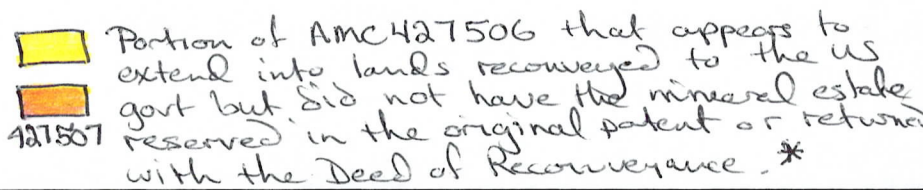 Portion of AMC427506 that appears to
extend into lands reconveyed to the US
govt but did not have the mineral estate
427507 reserved in the original patent or returned
with the Deed of Reconveyance. *